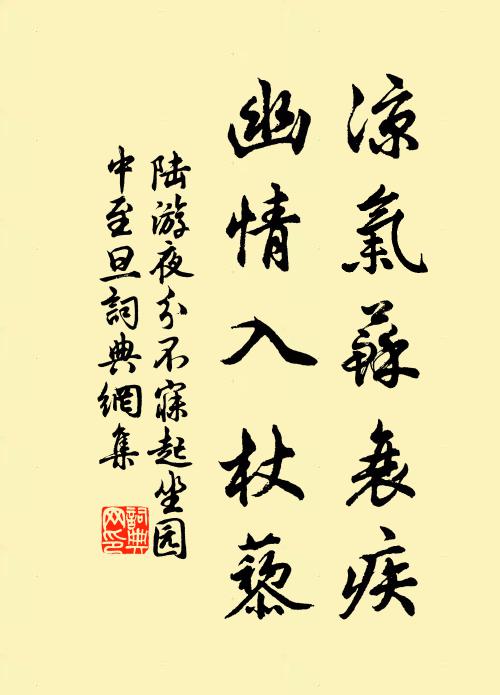 涼氣蘇衰疾
幽情入杖藜
陆游夜分不寐起坐园
中至旦詞典網集
詞典
网印